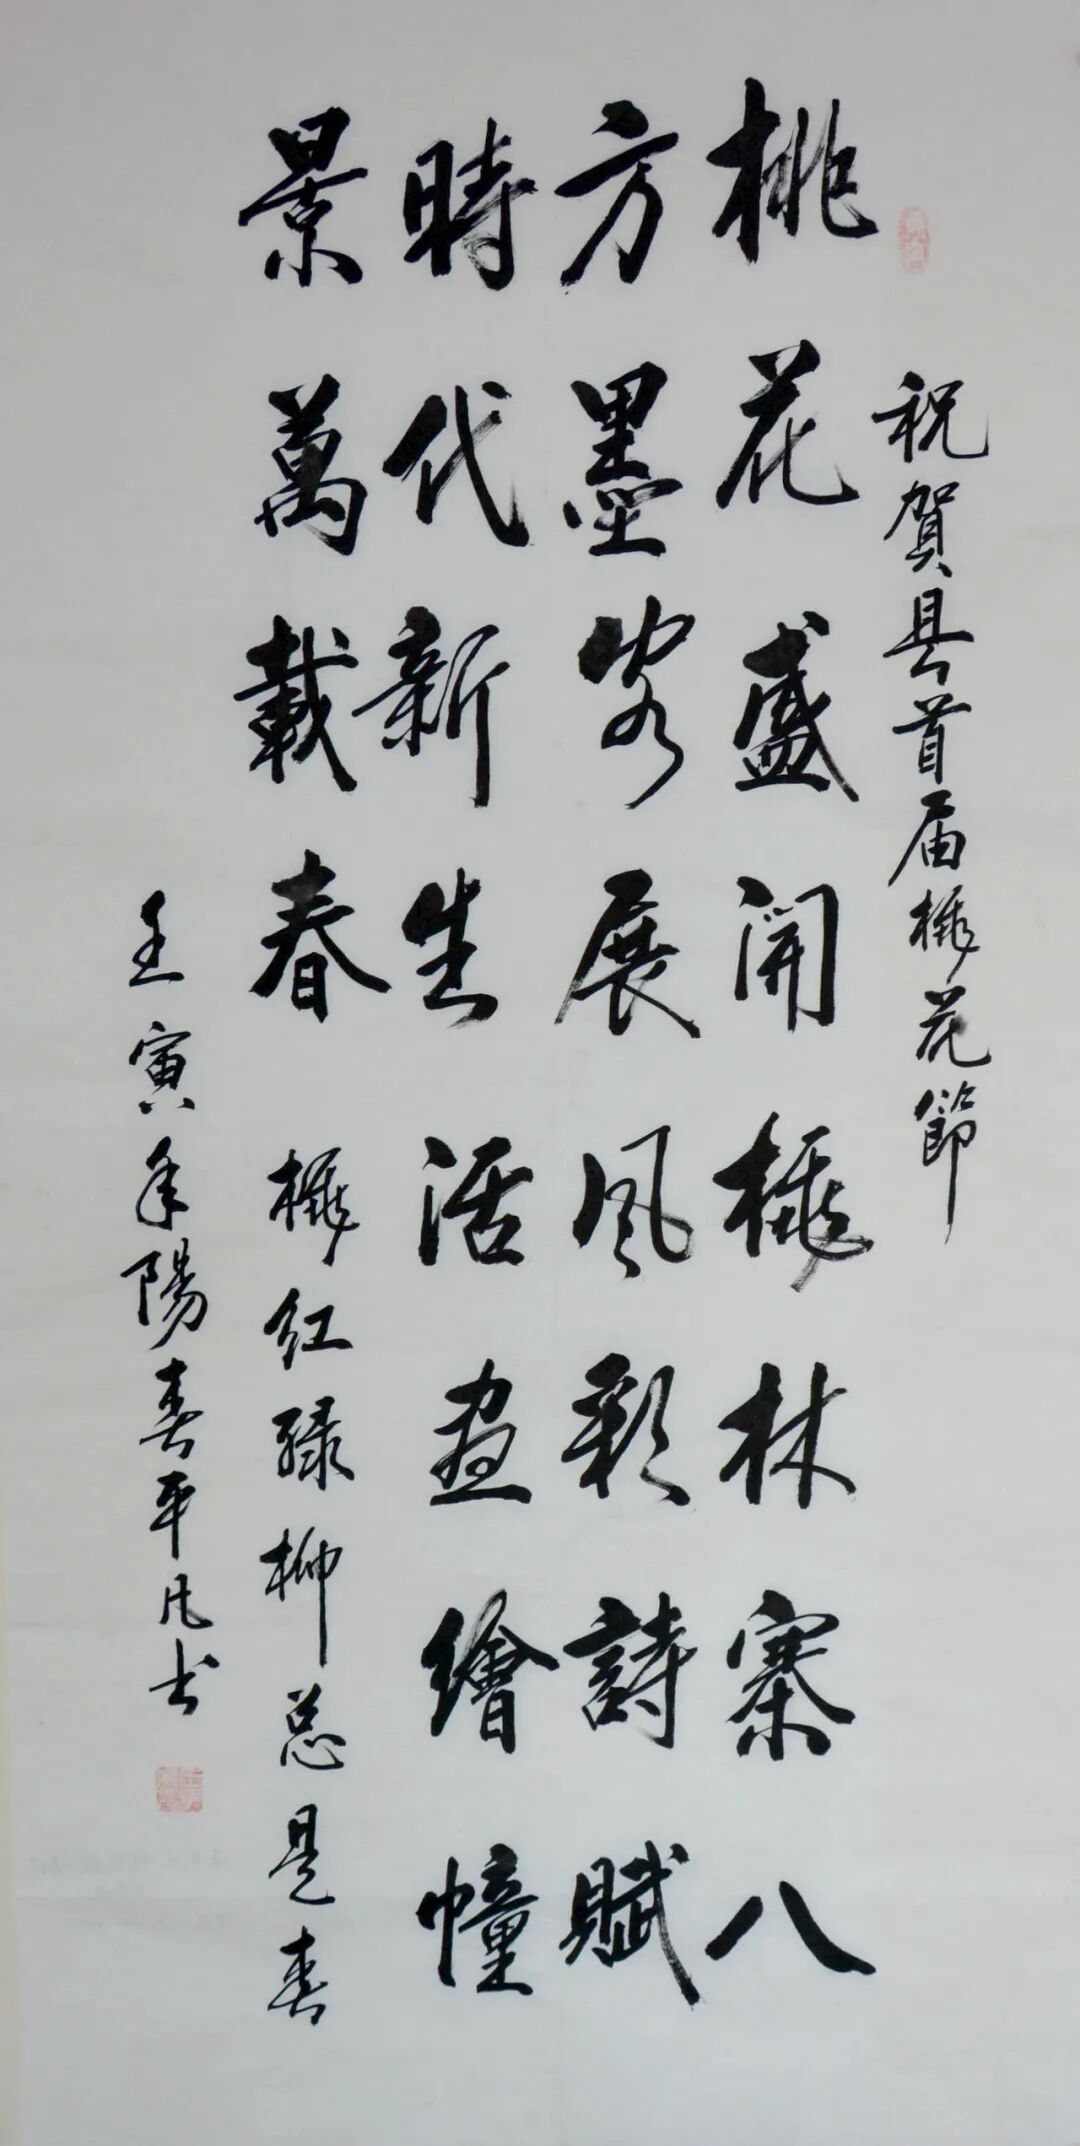 祝賀县首届桃花節
桃花盛開桃林寨八
方墨客展风彩詩賦
時代新生活画繪幢
景萬載春 桃红绿柳总是春
壬寅年陽春平凡书